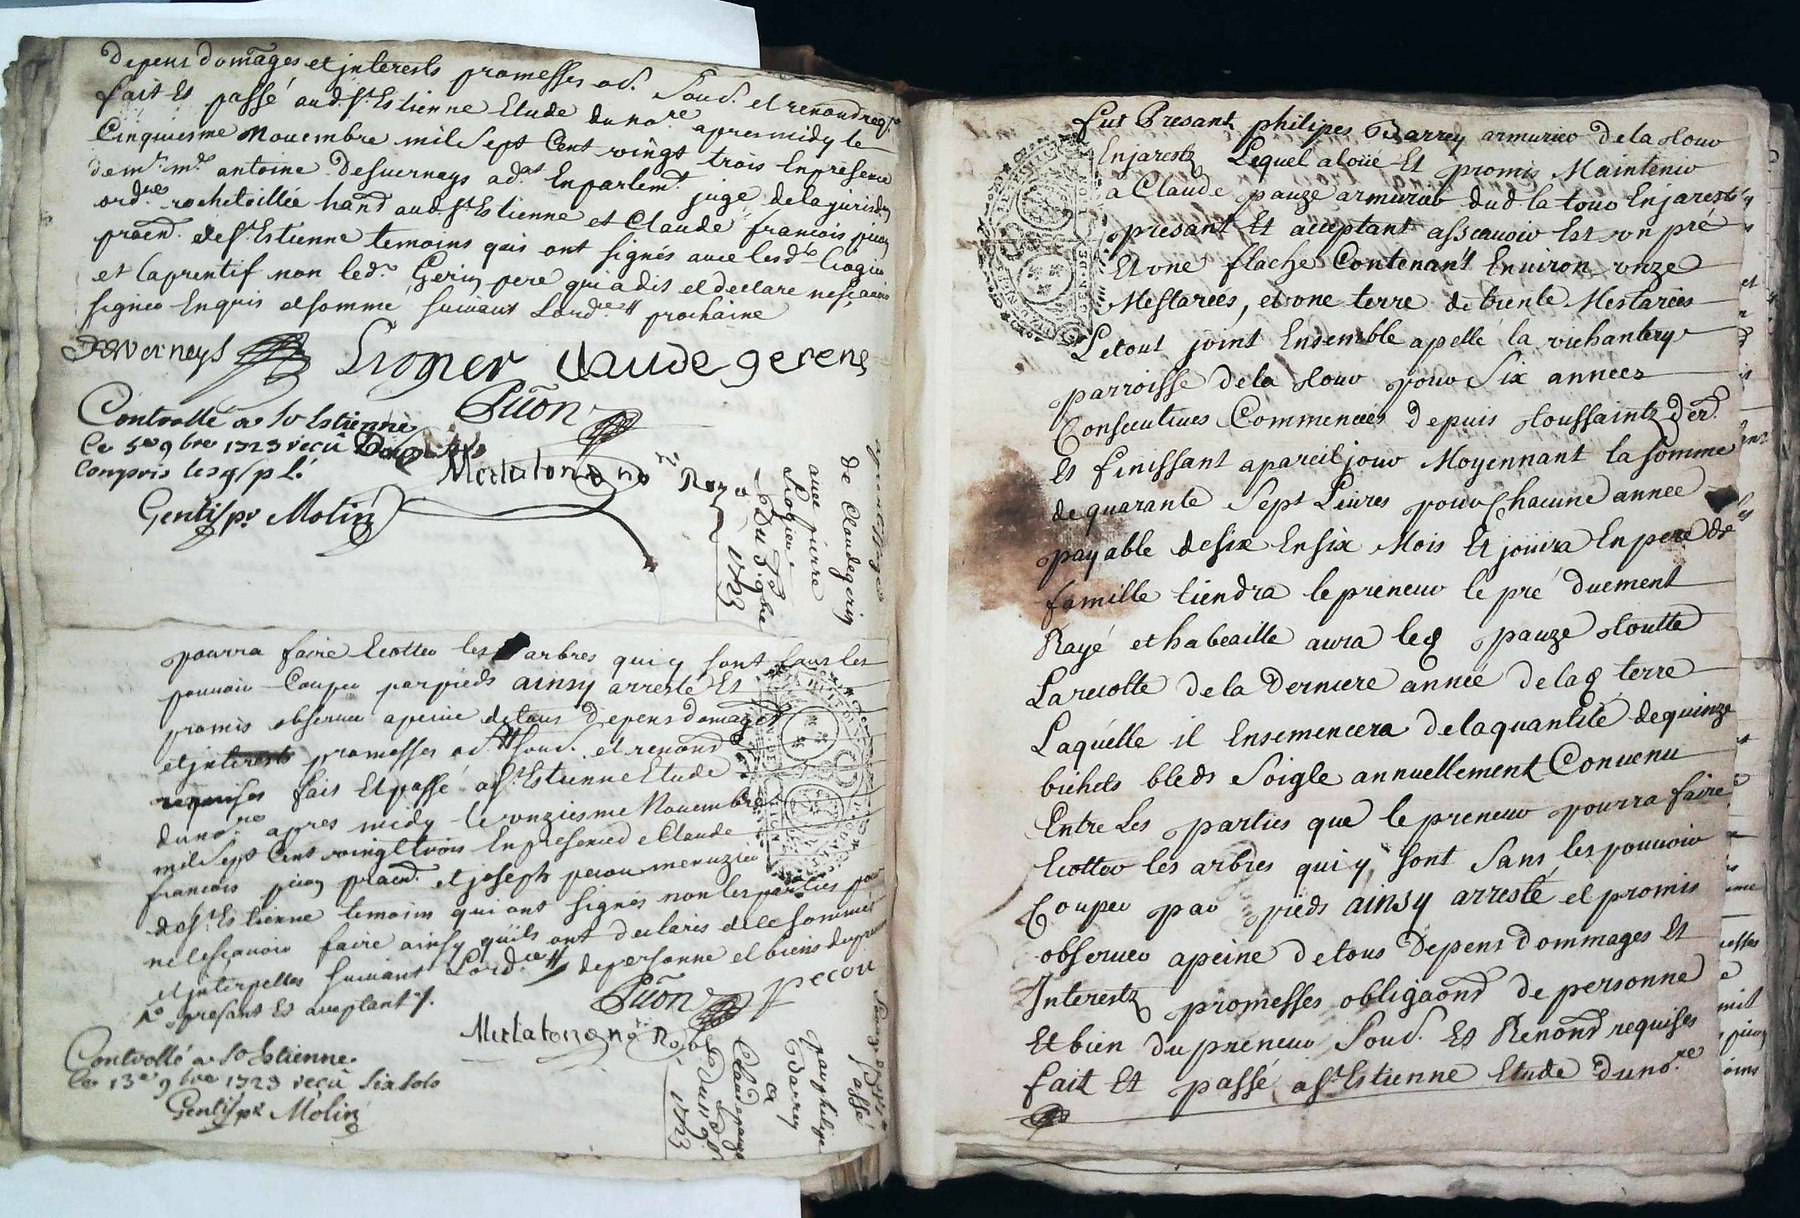 depens domages et interests promesses od. soud. et renond reqse
fait Et passé aud. st. Estienne Etude du nore. apres midy le
Cinquiesme Nouembre mil sept Cent vingt trois En presence
de mr. me antoine Desuerneys adat. En parlemt. juge de la jurisdon
ordre rochetaillée hant aud st. Estienne et Claude francois picon
praen. de st. Estienne temoins quis ont signés auec lesd.
et laprentif non led. Gerin pere qui a dis et declare ne sçauoir
signer Enquis et sommé suiuant Lordce. prochaine
Deverneys Liogier claude gerens
Picon
Controllé a St Estienne
Ce 5e 9bre 1723 receu
Compris les q/p l.
Gentil pr Molin
Merlatonend no. Ro.
apprentissage
de Claude gerin
auec pierre
Liogier
Du 5e 9bre
1723
pourra faire Ecotter les arbres qui y sont sans les
pouuoir Couper par pieds ainsy arresté Et
promis obseruer a peine de tous depens domages
et interests promesses od soud. et renond
requises fait Et passé a st. Estienne Etude
du nore apres midy le onziesme Nouembre
mil sept Cent vingt trois En presence de Claude
francois picon praen. et joseph pecou menuzier
de st. Estienne temoins qui ont signés non les parties pour
ne le sçauoir faire ainsy quils ont declarés de ce sommés
et interpellés suiuant Lordce de personne et biens du preneur
present Et aceptant
Picon pecou
Merlatonend no. Ro.
Controllé a St Estienne
Ce 13e 9bre 1723 receu six sols
Gentil pr Molin
passé
par philipe
Barrey
a
Claude pauze
Du 11 9bre
1723
Fut Presant philipes Barrey armurier de la tour
En jarestz Lequel a loüé Et promis Maintenir
a Claude pauze armurier dud. la tour En jarestz
presant Et acceptant asscauoir Est un pré
Et une flache Contenant Enuiron unze
Mestarées, et une terre de trente Mestarées
Le tout joint Ensemble apellé la richanbery
parroisse de la tour pour six années
Consecutiues Commencées depuis toussaintz der.
Et finissant a pareil jour Moyennant la somme
de quarante sept Liures pour Chacune année
payable de six En six Mois Et joüira En pere de
famille tiendra le preneur le pré duement
Rayé et habeaillé aura led pauze toutte
La recolte de la derniere année de lad terre
Laquelle il Ensemencera de la quantité de quinze
bichets bleds soigle annuellement Conuenu
Entre Les parties que le preneur pourra faire
Ecotter les arbres qui y sont sans les pouuoir
Couper par pieds ainsy arresté et promis
obseruer a peine de tous depens dommages Et
Interestz promesses obligaons de personne
Et bien du preneur soud. Et Renond requises
fait Et passé a st. Estienne Etude du nore